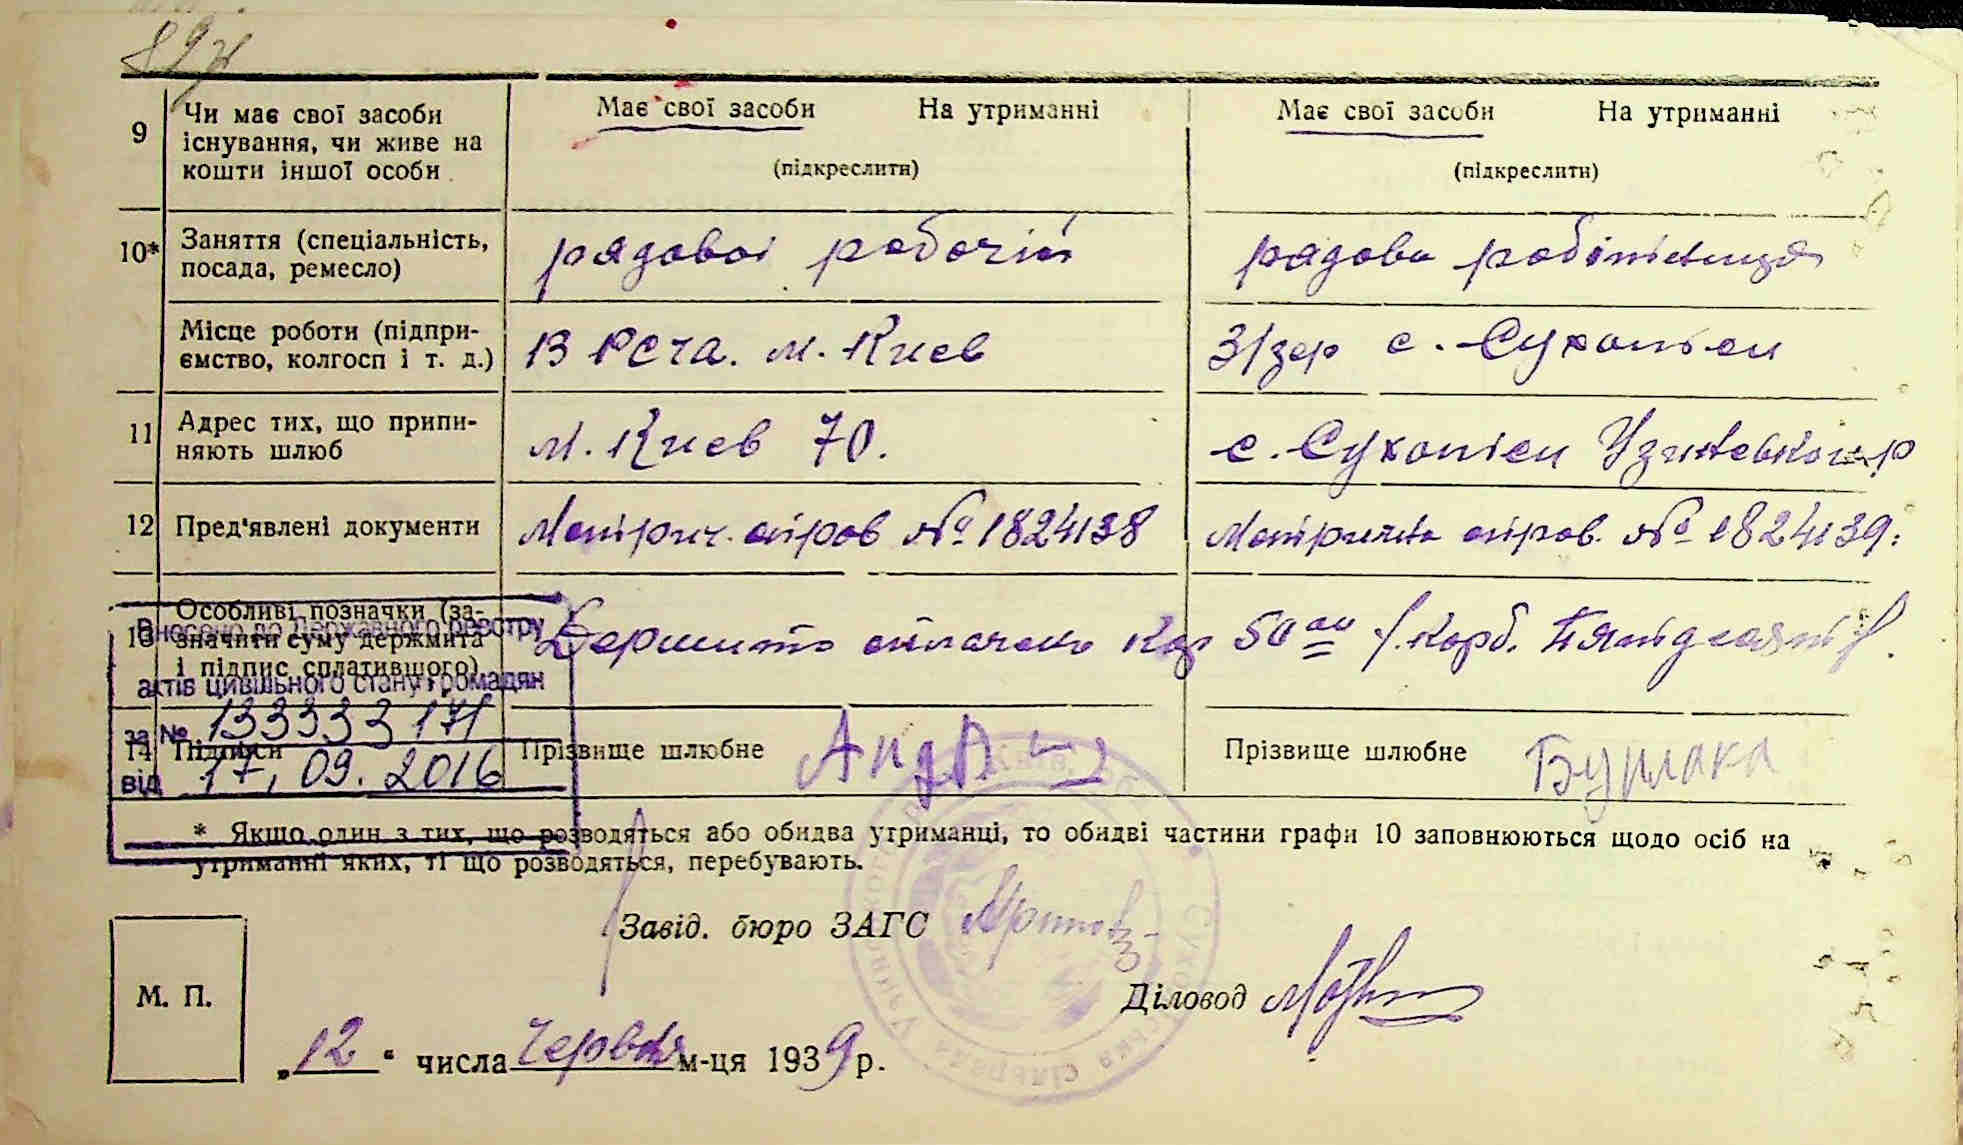 89
9 Чи має свої засоби існування, чи живе на кошти іншої особи
Має свої засоби На утриманні (підкреслити)
Має свої засоби На утриманні (підкреслити)
10* Заняття (спеціальність, посада, ремесло)
рядовой робочій
рядова робітниця
Місце роботи (підприємство, колгосп і т. д.)
м. Киев
с. Сухоліси
11 Адрес тих, що припиняють шлюб
м. Киев 70.
с. Сухоліси Узинського р
12 Пред'явлені документи
Метрич. справ №1824138
Метрична справ. № 1824139.
13 Особливі позначки (зазначити суму держмита і підпис сплатившого)
Держмито оплачено кар 50
Внесено до Державного реєстру
актів цивільного стану громадян
за № 133333171
від 17.09.2016
14 Підписи
Прізвище шлюбне
Прізвище шлюбне Бурлака
* Якщо один з тих, що розводяться або обидва утриманці, то обидві частини графи 10 заповнюються щодо осіб на
утриманні яких, ті що розводяться, перебувають.
Завід. бюро ЗАГС
Діловод
М. П.
„12“ числа Червня м-ця 1939 р.